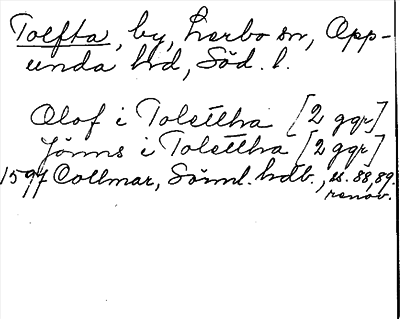 Tolfta, by, Lerbo sn, Opp-
unda hd, Söd. l.
Olof i Tolettha [2 ggr]
Jönns i Tolettha [2 ggr]
1597 Collmar, Sörml. hdb., ss. 88, 89.
renov.